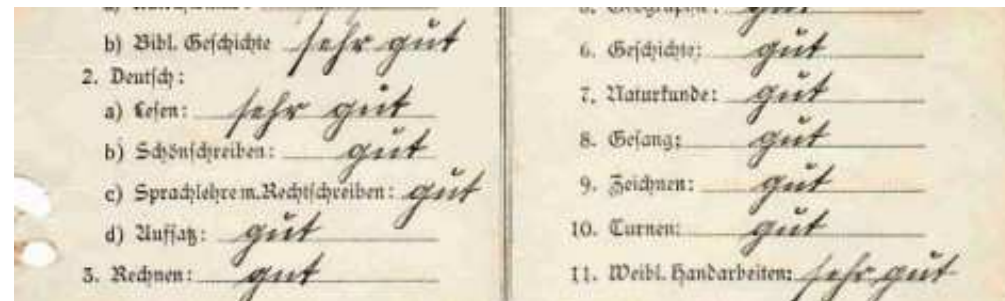 b) Bibl. Geschichte sehr gut
2. Deutsch:
a) Lesen: sehr gut
b) Schönschreiben: gut
c) Sprachlehre m. Rechtschreiben: gut
d) Aufsatz: gut
3. Rechnen: gut
5. Geographie: gut
6. Geschichte: gut
7. Naturkunde: gut
8. Gesang: gut
9. Zeichnen: gut
10. Turnen: gut
11. Weibl. Handarbeiten: sehr gut